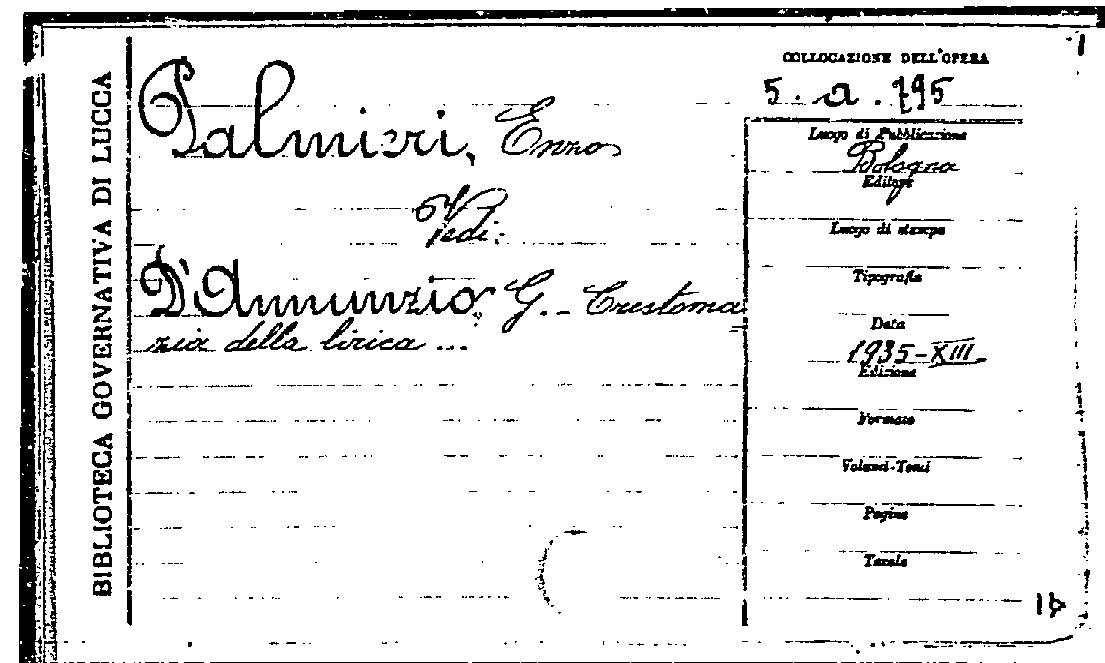 BIBLIOTECA GOVERNATIVA DI LUCCA
Palmieri, Enno
Vedi:
D'Annunzio, G. - Crestoma
zia della lirica ...
COLLOCAZIONE DELL'OPERA
5. a. 795
Luogo di Pubblicazione
Bologna
Editore
Luogo di stampa
Tipografia
Data
1935-XIII
Edizione
Formato
Volumi-Tomi
Pagine
Tavole